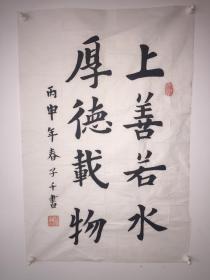 上善若水
厚德載物
丙申年春子千書